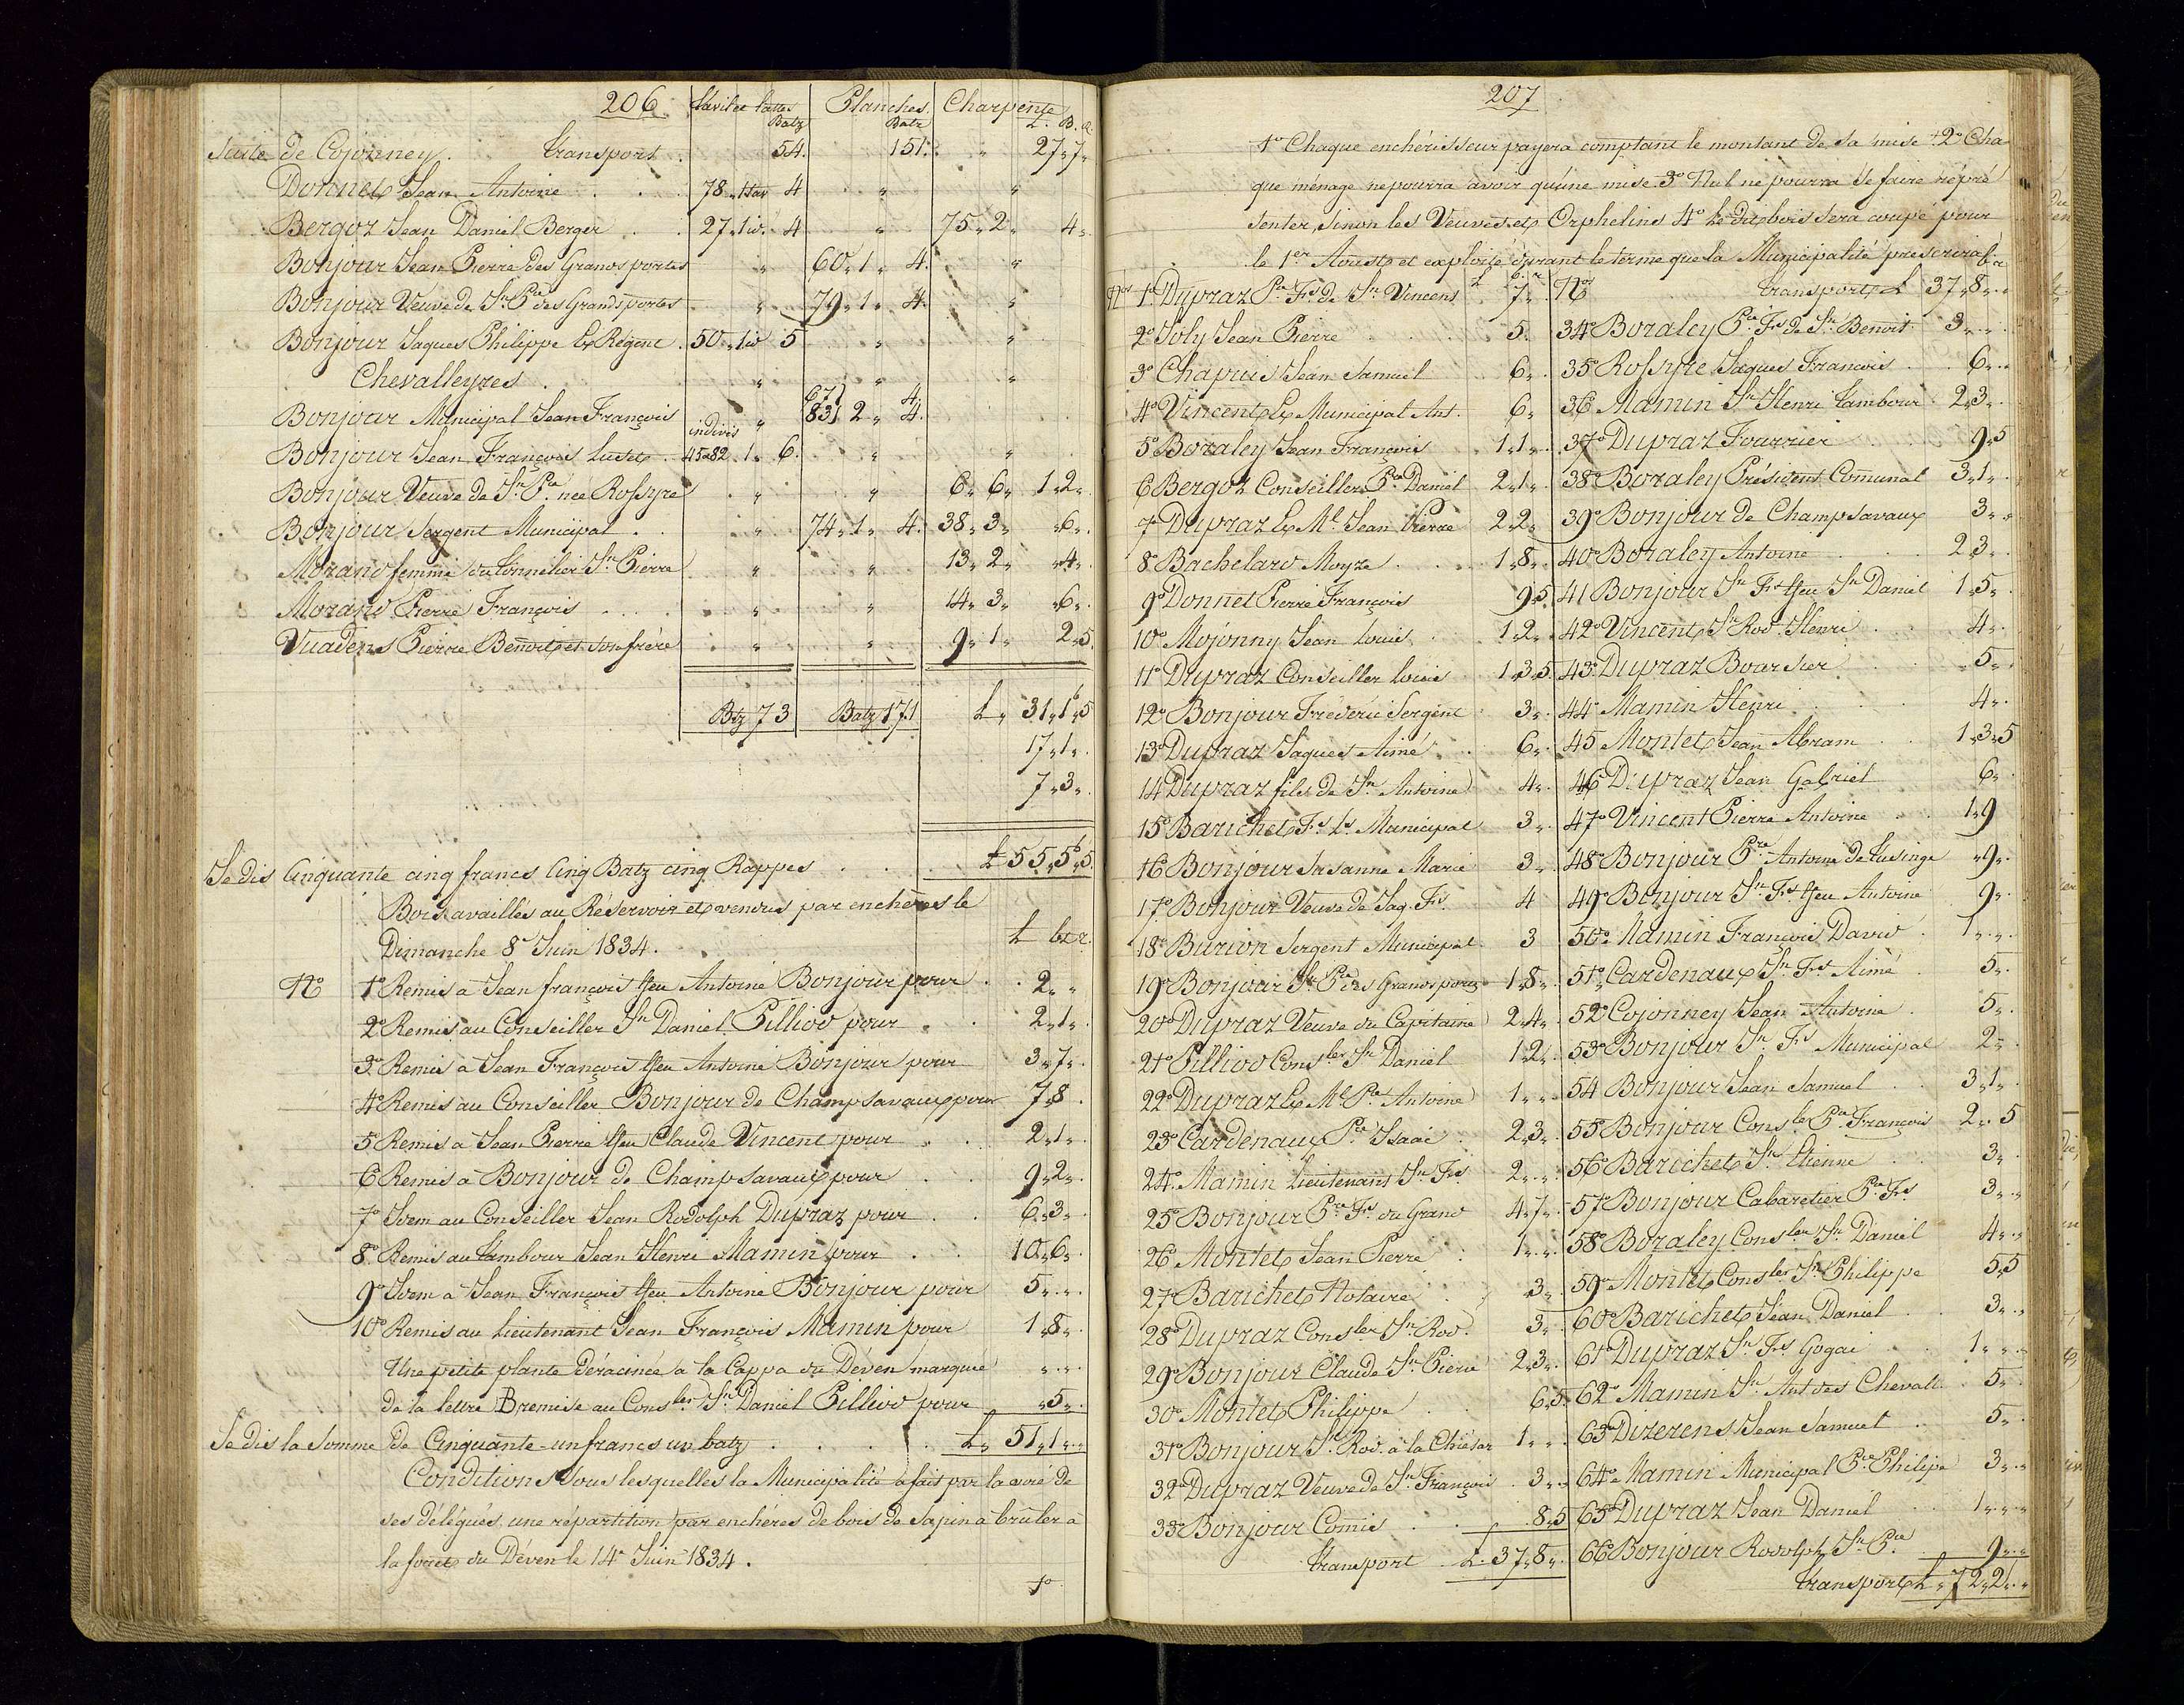 206. Planches. Charpente
Batz Batz L. B. R.
Suite de Cojonney. transport. 54. 151. " 27"7"
Donnet Jean Antoine 78" 4 " "
Bergoz Jean Daniel Berger 27" 4 " 75"2" 4"
Bonjour Jean Pierre des Grands portes " 60"1" 4. "
Bonjour Veuve de Jn Pre des Grands portes " 79"1" 4. "
Bonjour Jaques Philippe Le Régent 50" 5 " "
Chevalleyres. " " "
Bonjour Municipal Jean François " 67) 83) 2" 4" 4.
Bonjour Jean François indivis 45 & 82. 1" 6. " "
Bonjour Veuve de Jn Pre née Rossyre " " 6"6" 1"2"
Bonjour Sergent Municipal " 74"1" 4. 38"3" "6"
Morand femme du tonnelier Jn Pierre " " 13"2" "4"
Morand Pierre François " " 14"3" "6"
Vuadens Pierre Benoit et son frère " " 9"1" 2"5.
Btz 73 Batz 171 L" 31"1"5
17"1"
7"3"
Je dis Cinquante cinq francs Cinq Batz cinq Rappes L 55"5"5.
Bois availlés au Réservoir et vendus par enchères le
Dimanche 8e Juin 1834. L btz r.
No 1o Remis à Jean françois feu Antoine Bonjour pour 2" "
2o Remis au Conseiller Jn Daniel Pilliod pour 2"1"
3o Remis à Jean François feu Antoine Bonjour pour 3"7"
4o Remis au Conseiller Bonjour de Champsavaux pour 7"8.
5o Remis à Jean Pierre feu Claude Vincent pour 2"1"
6 Remis à Bonjour de Champsavaux pour 9"2"
7o Idem au Conseiller Jean Rodolph Dupraz pour 6"3"
8o Remis au tambour Jean Henri Mamin pour 10"6"
9o Idem à Jean François feu Antoine Bonjour pour 5" "
10o Remis au Lieutenant Jean François Mamin pour 1"8"
Une petite plante déracinée à la Cappa du Déven marquée " "
de la lettre B remise au Consler Jn Daniel Pilliod pour "5"
Je dis la Somme de Cinquante-un francs un batz L" 51"1"
Conditions sous lesquelles la Municipalité a fait par la voie de
ses délégués une répartition par enchères de bois de Sapin à brûler à
la forêt du Déven le 14e Juin 1834.
1o
207
1o Chaque enchérisseur payera comptant le montant de sa mise. 2o Cha
que ménage ne pourra avoir qu'une mise. 3o Nul ne pourra se faire répré
senter, sinon les Veuves et Orphelins 4o Le dit bois sera coupé pour
le 1er Aoust et exploité durant le terme que la Municipalité prescrira.
Nos 1o Dupraz Pre Fs de Jn Vincent 7"
2o Joly Jean Pierre 5.
3o Chapuis Jean Samuel 6"
4o Vincent Le Municipal Ant. 6"
5o Boraley Jean François 1"1"
6 Bergoz Conseiller Pre Daniel 2"1"
7o Dupraz Le Ml Jean Pierre 2"2"
8o Bachelard Moyze 1"8"
9o Donnet Pierre François 9"5
10o Mojonny Jean Louis 1"2"
11o Dupraz Conseiller Louis 1"3"5
12o Bonjour Fréderic Sergent 3"
13o Dupraz Jaques Aimé 6"
14 Dupraz fils de Jn Antoine 4"
15o Barichet Fs Ls Municipal 3"
16 Bonjour Susanne Marie 3"
17o Bonjour Veuve de Jaq. Fs. 4
18o Burion Sergent Municipal 3
19o Bonjour Jn Pre des Grands portes 1"8"
20o Dupraz Veuve du Capitaine 2"4"
21o Pilliod Consler Jn Daniel 1"2"
22o Dupraz Le Ml Pre Antoine 1" "
23o Cardenaux Pre Isaac 2"3"
24o Mamin Lieutenant Jn Frs 2" "
25o Bonjour Pre Frs du Grand 4"7"
26 Montet Jean Pierre 1" "
27 Barichet Notaire 3"
28o Dupraz Consler Jn Rod. 3"
29o Bonjour Claude Jn Pierre 2"3"
30o Montet Philippe 6"5
31o Bonjour Jn Rod. à la Chiésaz 1" "
32o Dupraz Veuve de Jn François 3" "
33o Bonjour Comis 8"5
transport L. 37"8"
Nos transport L 37"8"
34o Boraley Pre Frs de Jn Benoit 3" "
35o Rossyre Jaques François 6" "
36 Mamin Jn Henri tambour 2"3"
37o Dupraz Fourrier 9"5
38o Boraley Président Comunal 3"1"
39o Bonjour de Champsavaux 3" "
40o Boraley Antoine 2"3"
41 Bonjour Jn Frs feu Jn Daniel 1"5"
42o Vincent Jn Rod Henri 4"
43o Dupraz Boursier "5"
44o Mamin Henri 4"
45 Montet Jean Abram 1"3"5
46 Dupraz Jean Gabriel 6"
47o Vincent Pierre Antoine 1"9
48o Bonjour Pre Antoine de Lusinge "9"
49o Bonjour Jn Frs feu Antoine 9"
50o Mamin François David 1" "
51o Cardenaux Jn Frs Aimé 5"
52o Cojonney Jean Antoine 5"
53o Bonjour Jn Frs Municipal 2"
54 Bonjour Jean Samuel 3"1"
55o Bonjour Consler Pre François 2" 5
56o Barichet Jn Etienne 3"
57o Bonjour Cabaretier Pre Frs 3" "
58o Boraley Consler Jn Daniel 4" "
59o Montet Consler Jn Philippe 5"5
60o Barichet Jean Daniel 3" "
61o Dupraz Jn Frs Gogai 1" "
62o Mamin Jn Ant des Chevall. 5"
63o Dizerens Jean Samuel 5"
64o Mamin Municipal Pre Philipe 3" "
65o Dupraz Jean Daniel 1" "
66o Bonjour Rodolph Jn Pre 9" "
transport L" 72"2"